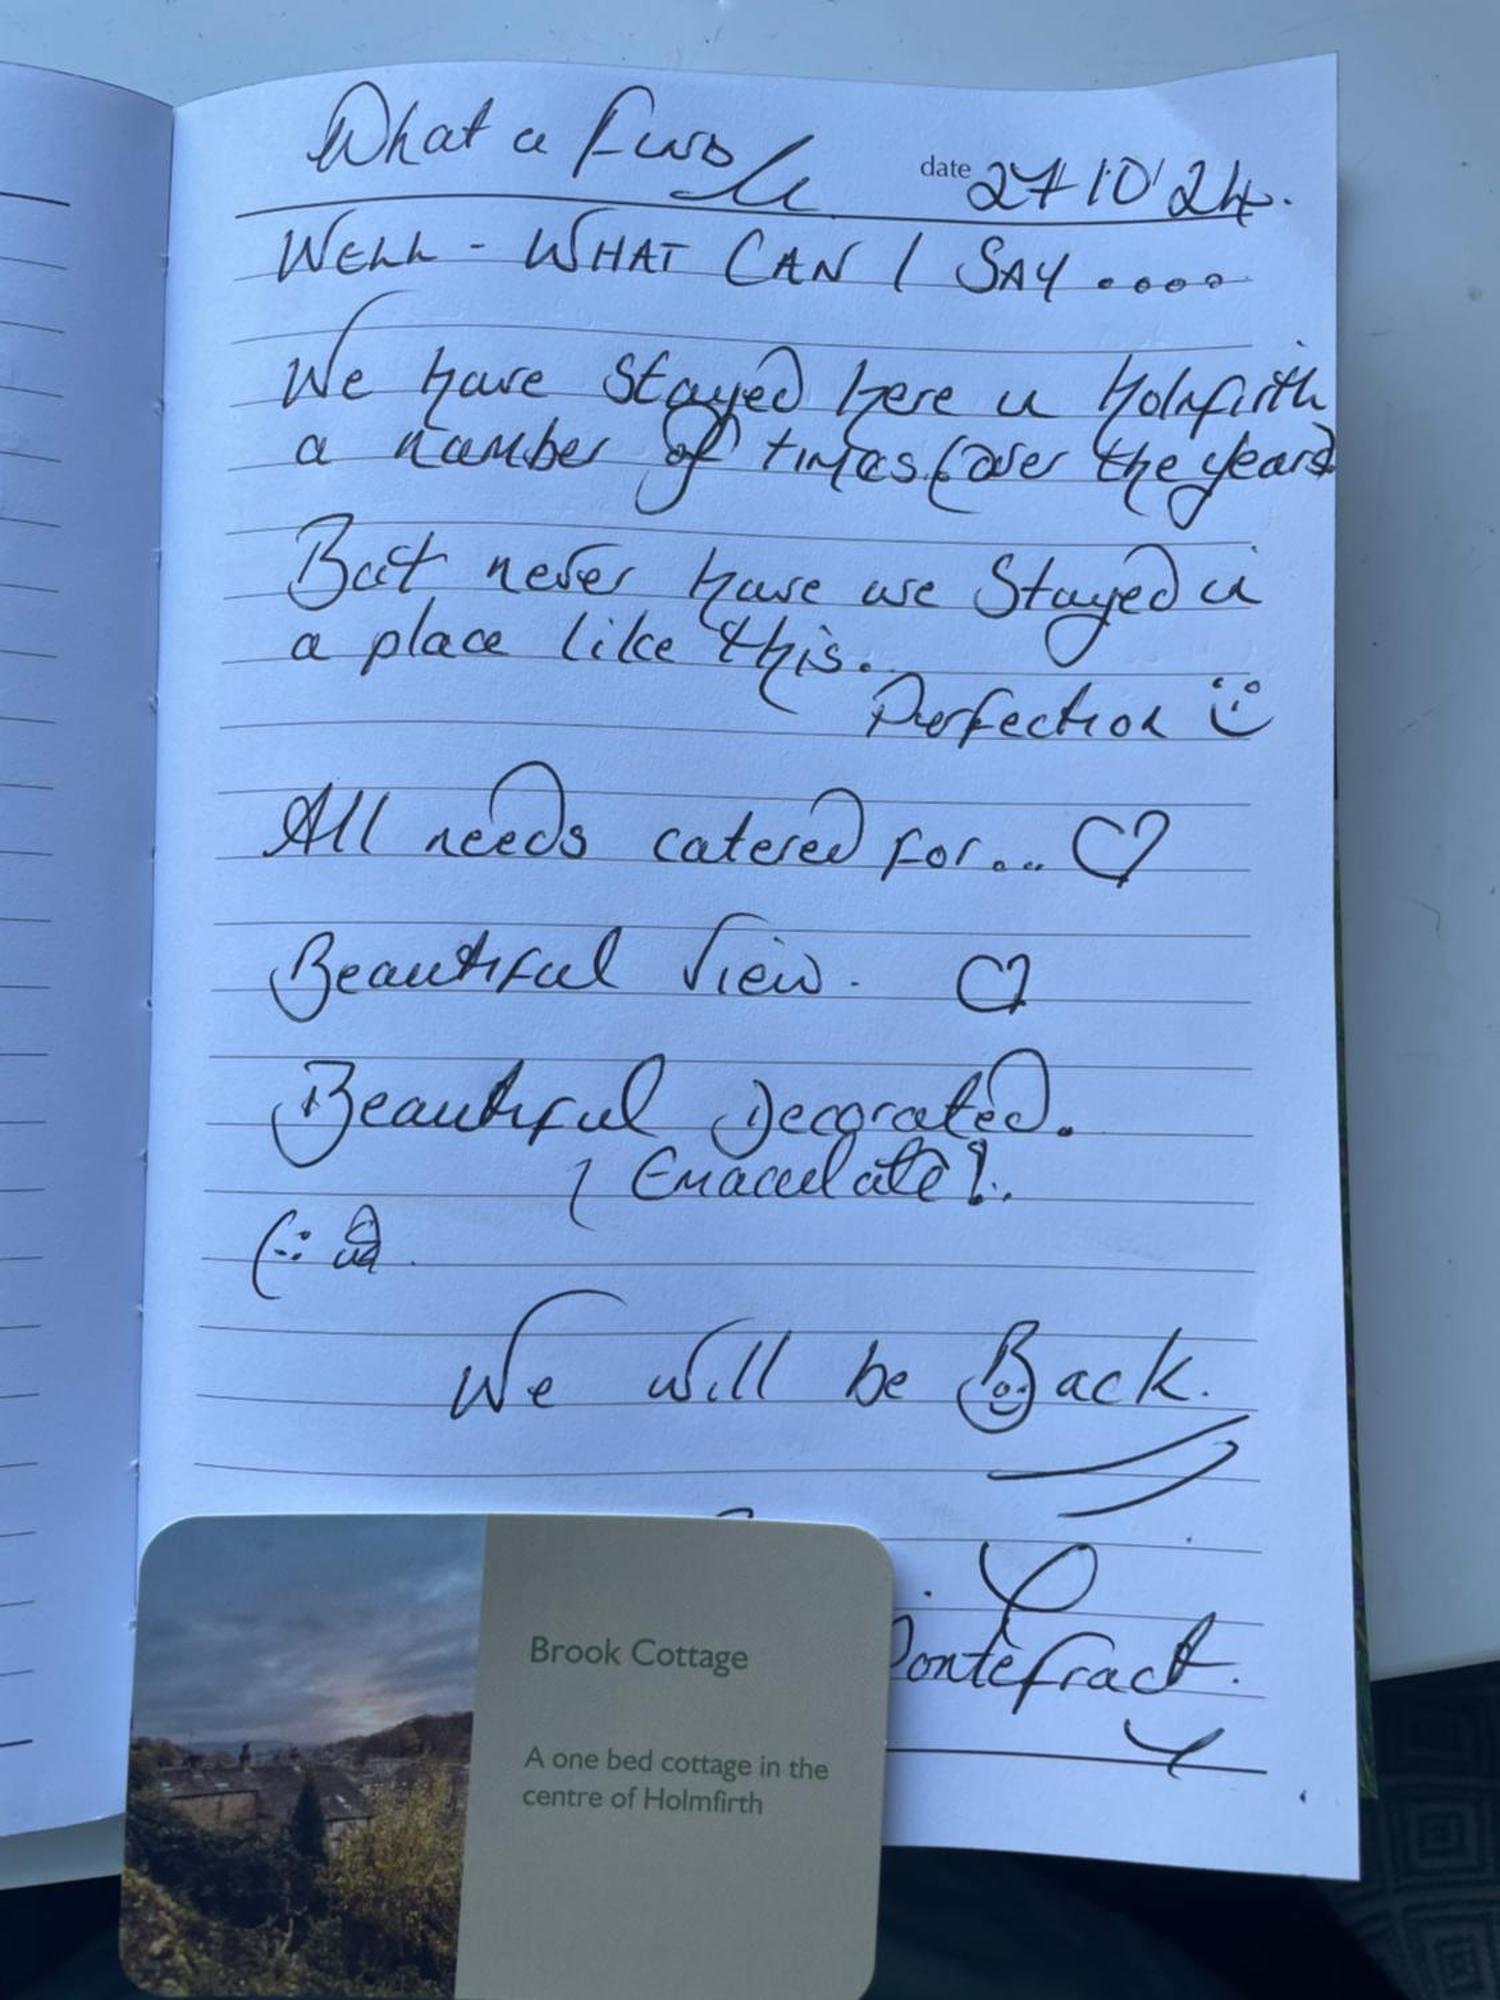 What a find
date 27/10/24.
WELL - WHAT CAN I SAY ....
We have stayed here in Holmfirth
a number of times (over the years)
But never have we Stayed in
a place like this.
Perfection
All needs catered for...
Beautiful view.
Beautiful Decorated.
Emaculate!.
We will be Back.
Pontefract.
Brook Cottage
A one bed cottage in the
centre of Holmfirth